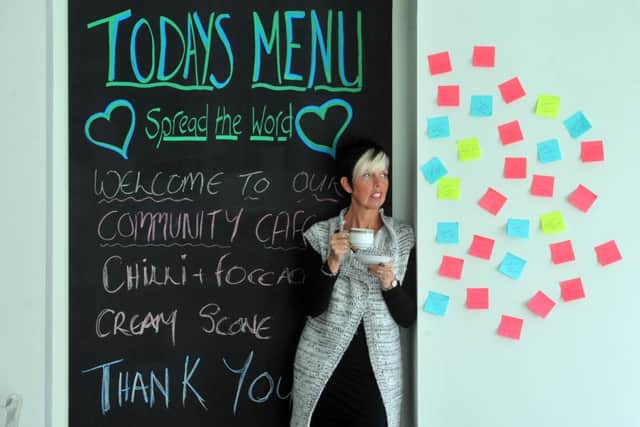 TODAYS MENU
Spread the Word
WELCOME TO OUR
COMMUNITY CAFE
CHILLI + FOCCAC
CREAM SCONE
THANK YOU